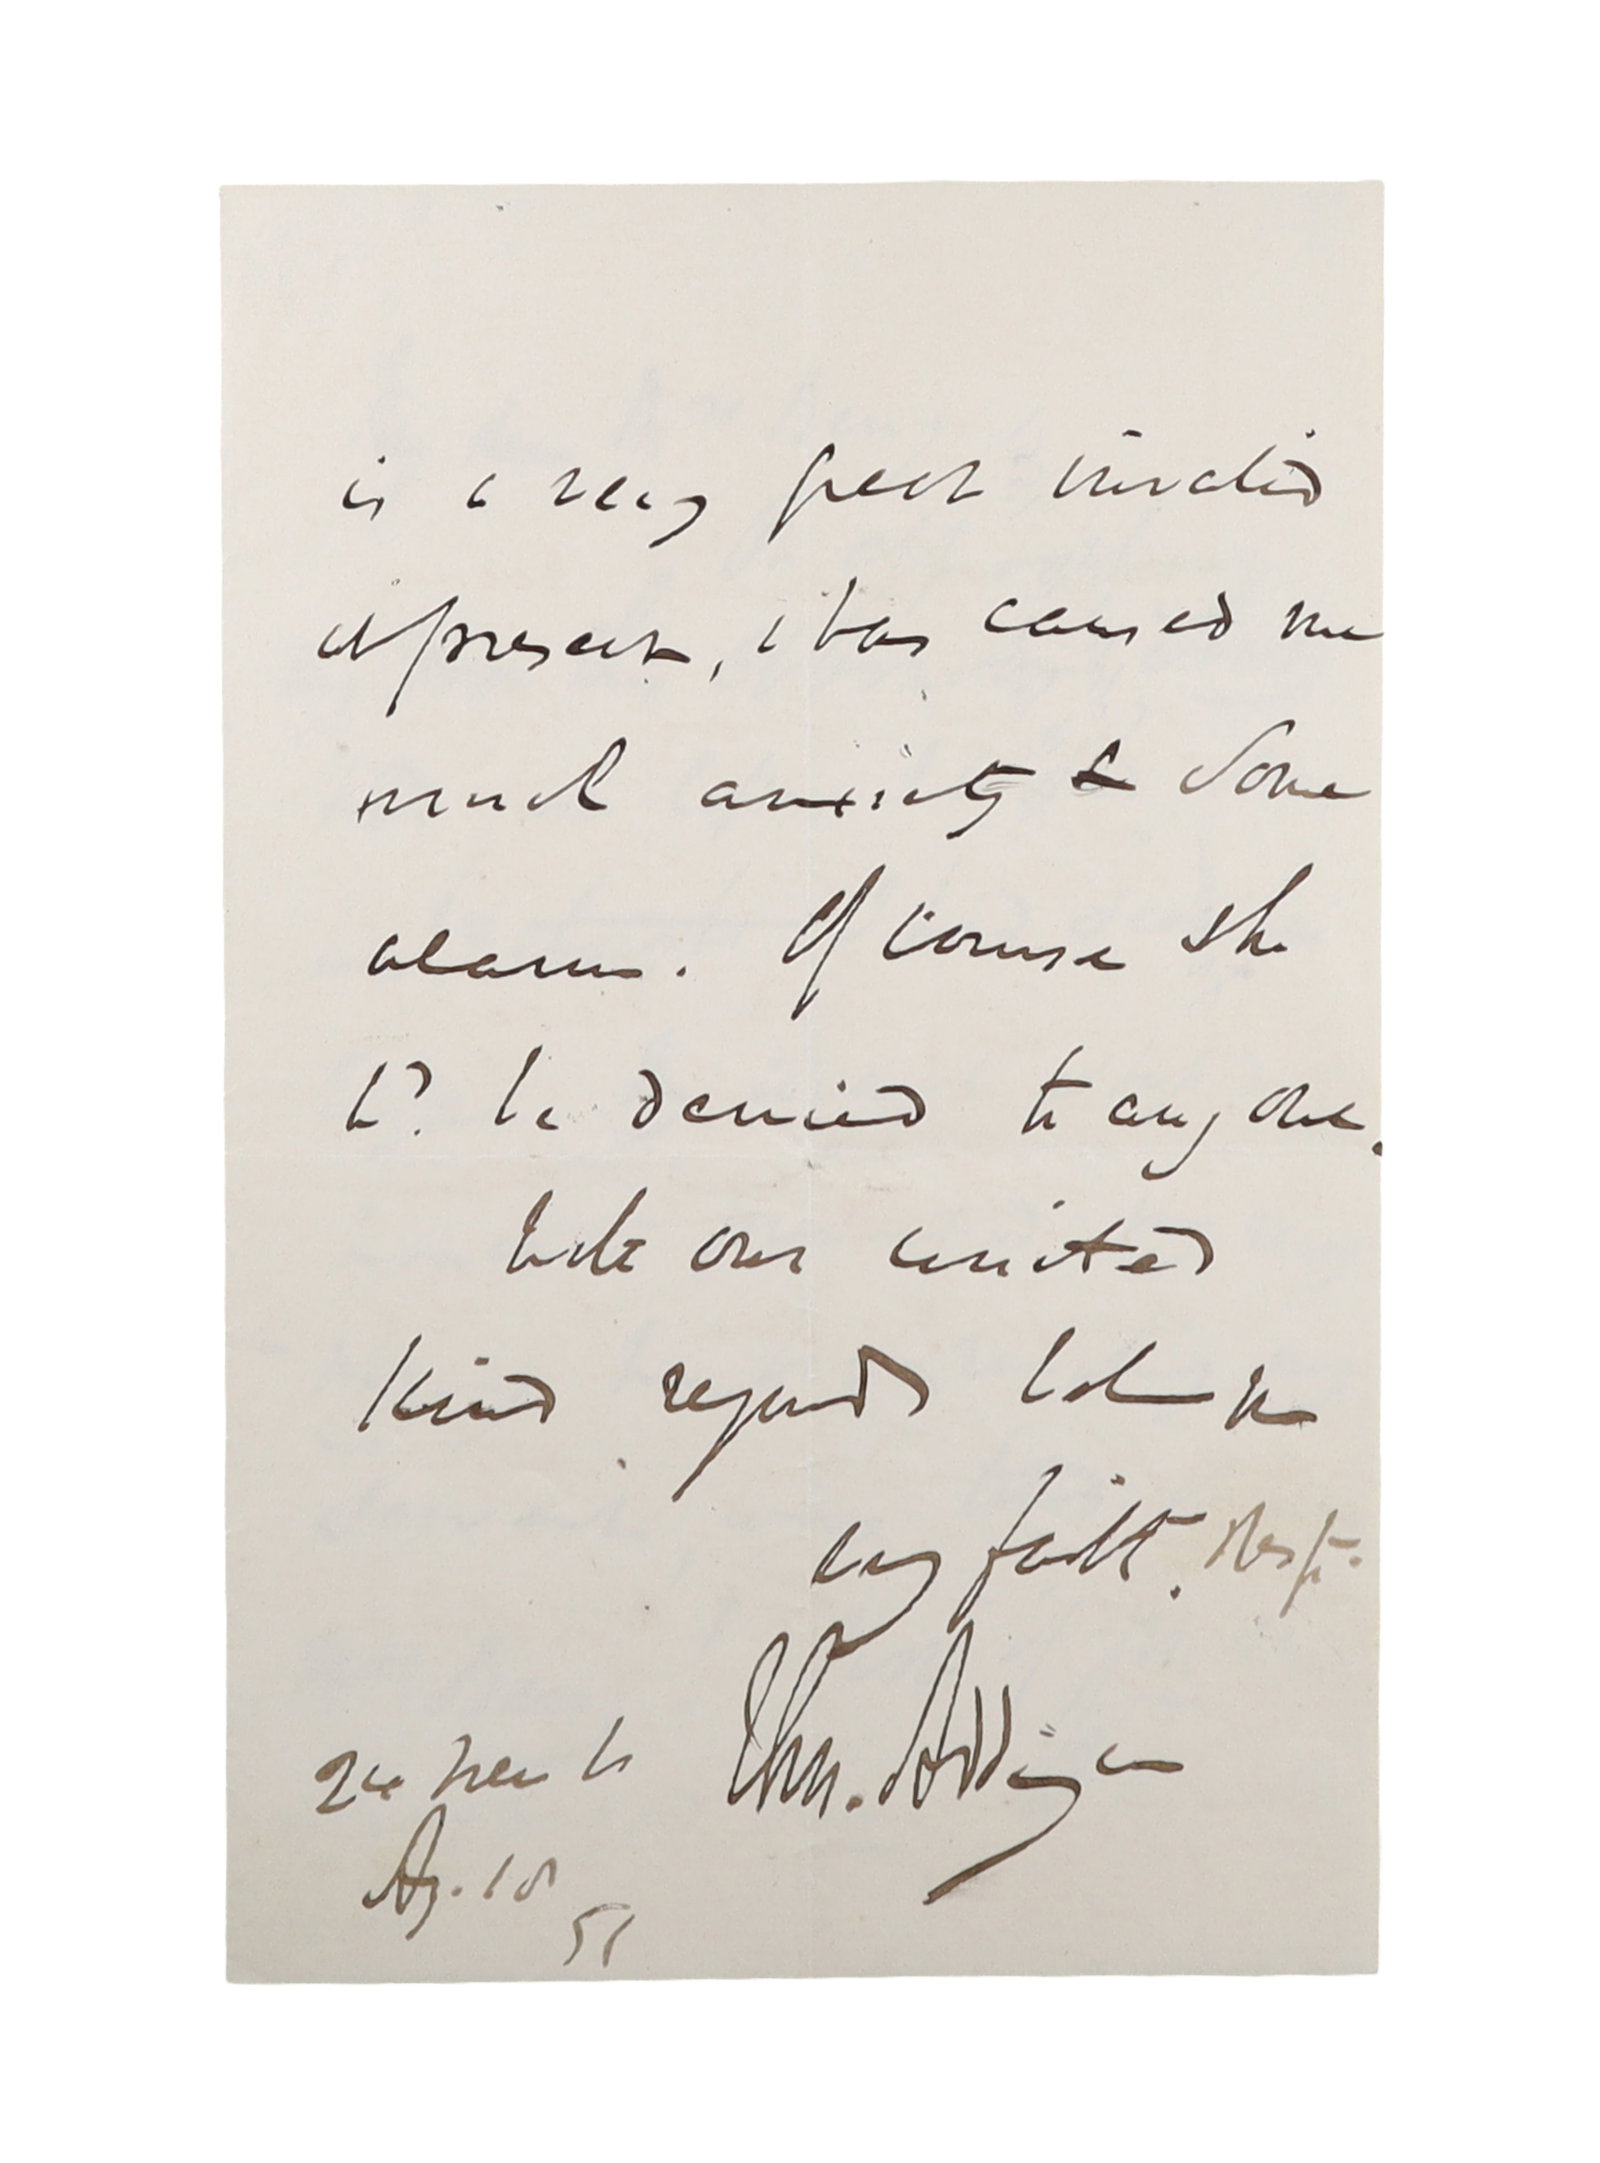 is a very great invalid
at present, & has caused me
much anxiety & some
alarm. Of course she
wd. be denied to any one.
With our united
kind regards believe me
my faitht.
Thos. Addison
24 New St
Ag. 18
51